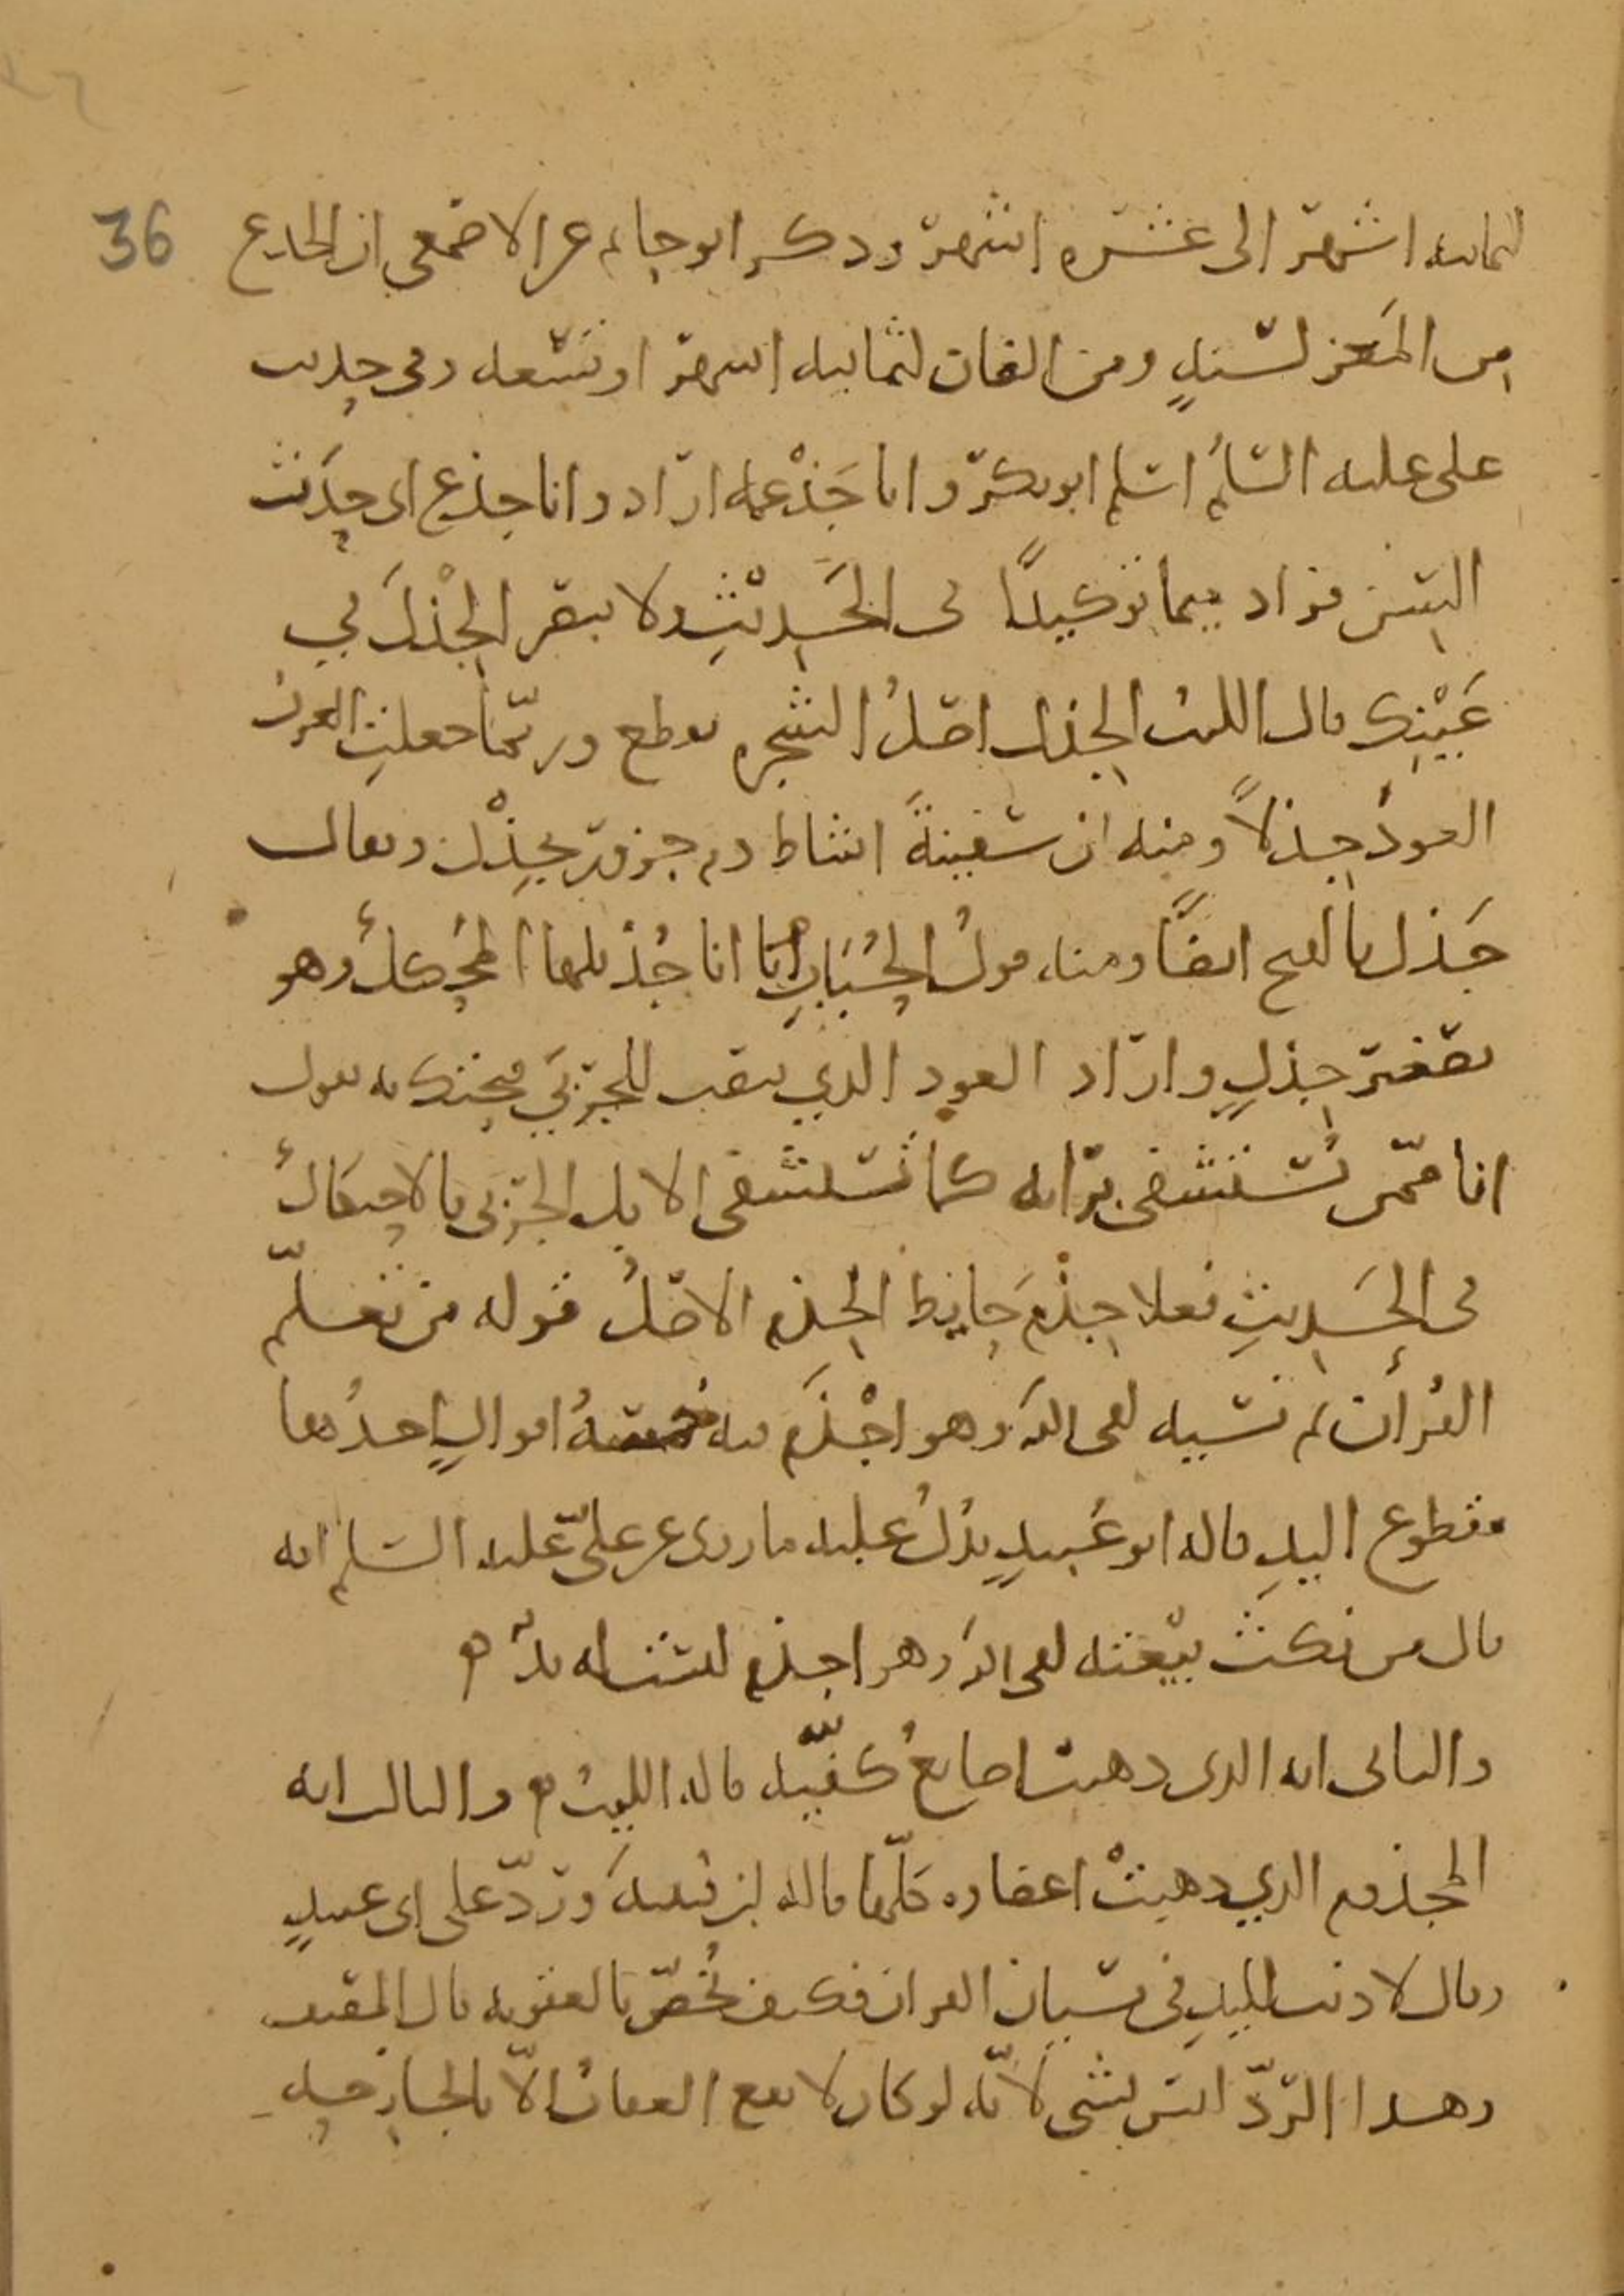 36
لثمانيه اشهر الى عشره اشهر وذكر ابو حاتم عن الاصمعي ان الجذع
من المعز لسنةٍ ومن الضان لثمانيه اشهر او تسعه وفي حديث
على عليه السلم اسلم ابو بكر وانا جَذْعمه اراد وانا جذع اى حدَث
السن فزاد ميما توكيدًا في الحَديثِ ولا يبصر الجِذْلَ في
عَيْنِك قال الليث الجذل اصلُ الشجره يقطع وربّما جعلتِ العربُ
العودَ جذلاً ومنه ان سفينةَ اشاط دم جزور بجِذْل ويقال
جَذل بالفتح ايضًا ومنه قولُ الحُبَابِ انا جُذَيلها المُحَكك وهو
تصغير جِذلٍ واراد العود الذي ينصب للجَرْبَي فتحتك به يقول
انا ممّن يُسْتشفى برايه كما تستشفى الابل الجَرْبى بالاحتكاك
في الحَديثِ فعلا جِذْمَ حايطٍ الجذم الاصلُ قوله من تعلّم
القُرأن ثم نسيه لقى الله وهو اجْذَم فيه خمسهُ اقوالٍ احدُها
مقطوع اليدِ قاله ابو عُبيدٍ يدُلُ عليه ما روى عن علىّ عليه السلم انه
قال من نكث بيْعته لقى الله وهو اجذم ليست له يدٌ
والثانى انه الذى ذهبت اصابعُ كفّيه قاله الليث والثالث انه
المجذوم الذي ذهبتْ اعضاوه كلّها قاله ابن قتيبهَ وردّ على ابى عبيدٍ
وقال لا ذنب لليدِ في نسيان القران فكيف تُخصّ بالعقوبه قال المصنف
وهذا الرّدّ ليس بشى لانّه لو كان لا يقع العقابُ الاّ بالجارحهِ